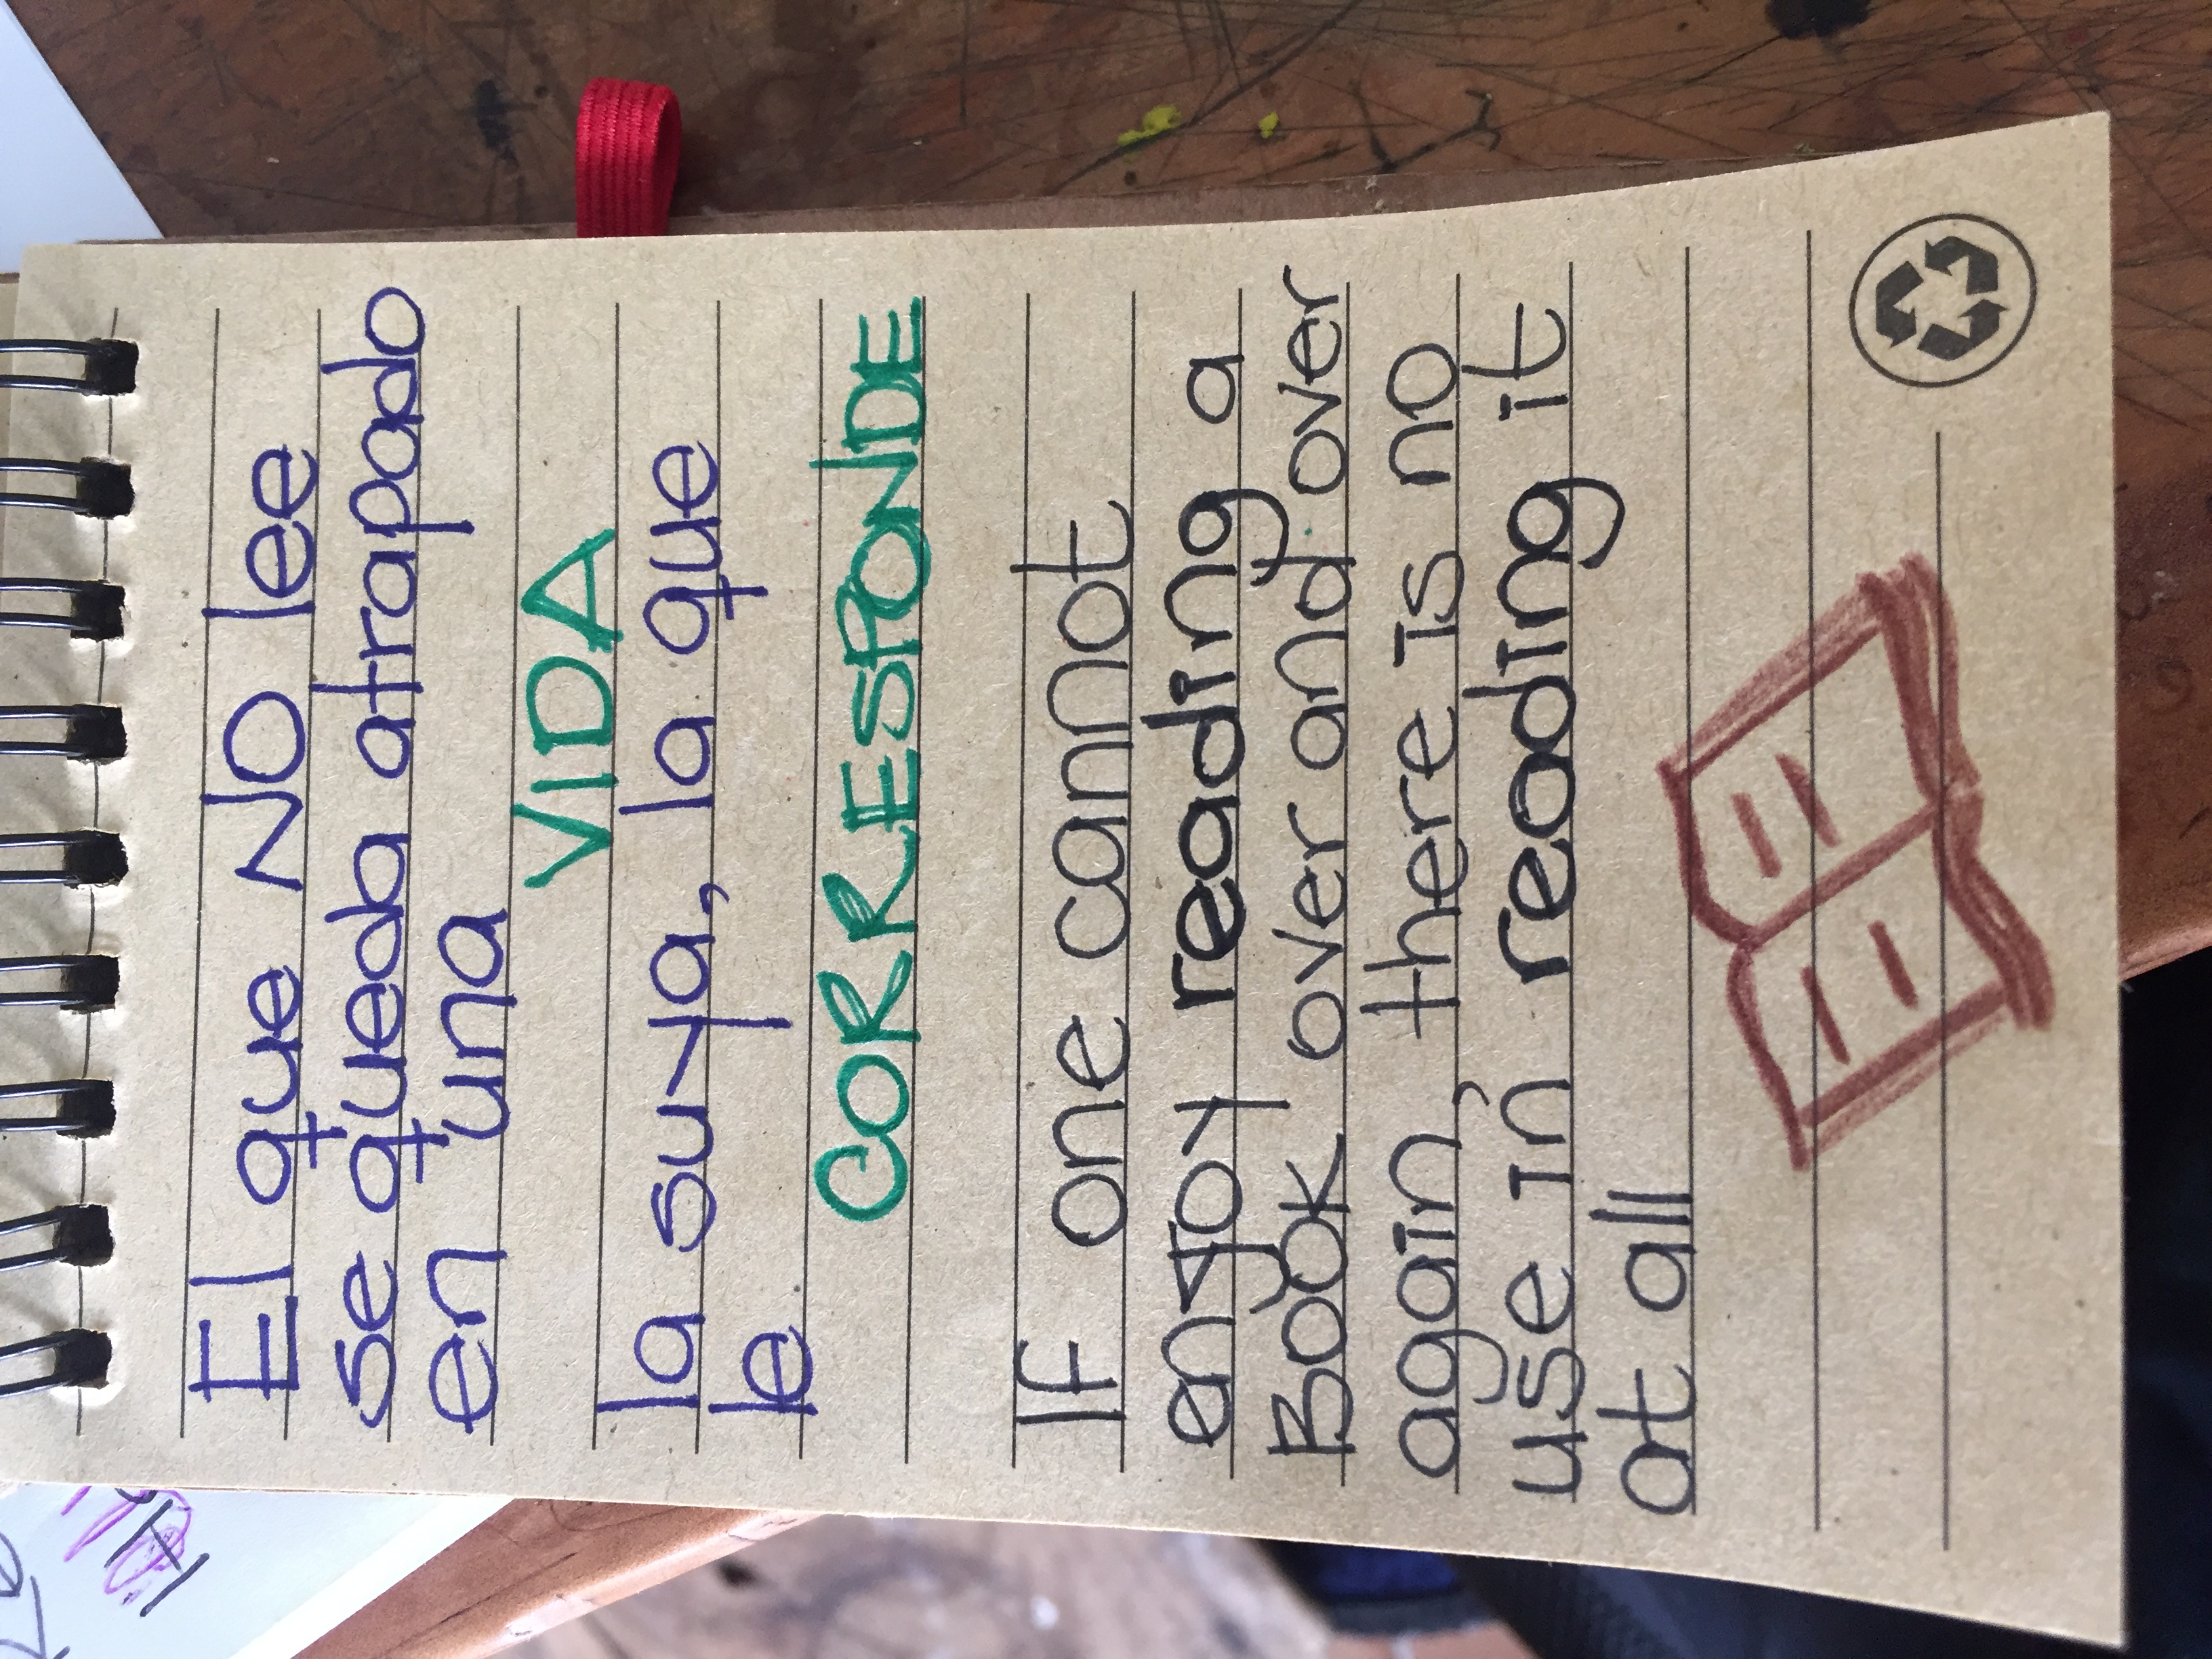 El que NO lee
se queda atrapado
en una
VIDA
la suya, la que
le
CORRESPONDE
If one cannot
enjoy reading a
BOOK over and over
again, there is no
use in reading it
at all